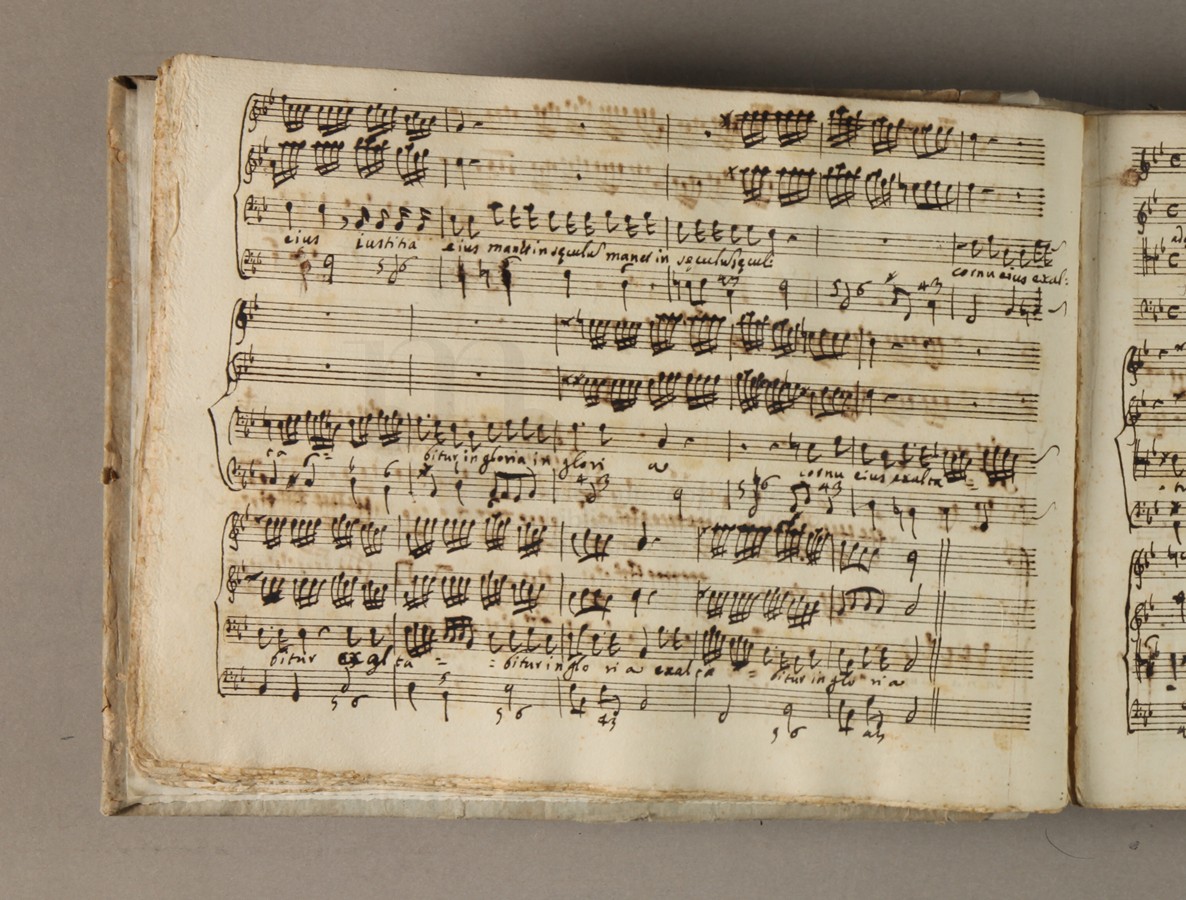 eius iustitia eius manet in sęculũ manet in sęculũ sęculi
cornu eius exal:
ta = bitur in gloria in glori a
cornu eius exalta =
bitur exalta = = bitur in glo ri a exalta = bitur in glo ri a